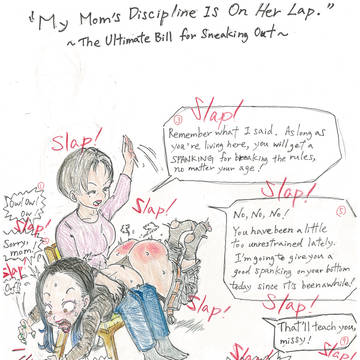 "My Mom's Discipline Is On Her Lap."
~The Ultimate Bill for Sneaking Out~
Slap!
③
Remember what I said. As long as
you're living here, you will get a
SPANKING for breaking the rules,
no matter your age!
Slap!
①
Ow! Ow!
Ow
Slap!
Slap!
Sorry,
mom!
Slap
Slap!
⑤
No, No, No!
You have been a little
too unrestrained lately.
I'm going to give you a
good spanking on your bottom
today since it's been awhile!
Slap!
Slap!
That'll teach you,
missy!